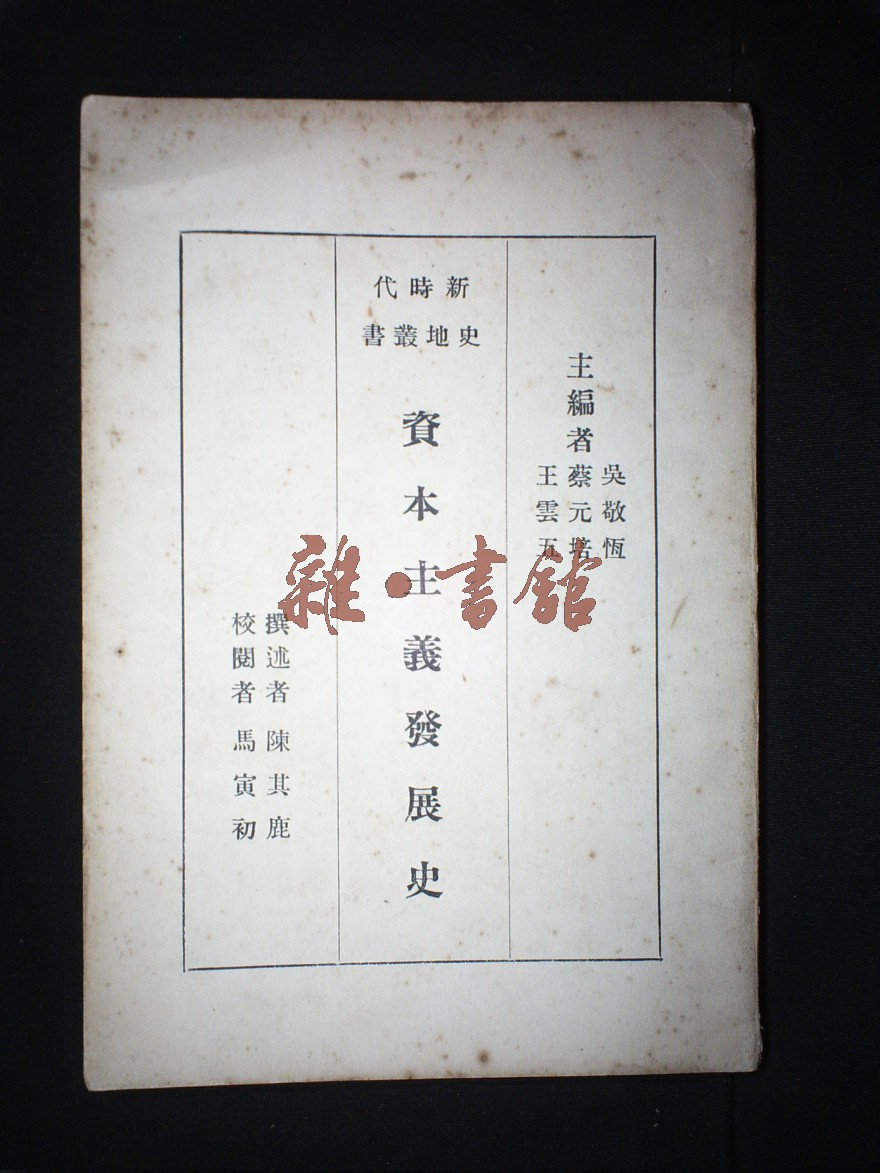 主編者
吳敬恆
蔡元培
王雲五
新時代
史地叢書
資本主義發展史
撰述者 陳其鹿
校閱者 馬寅初
雜·書館